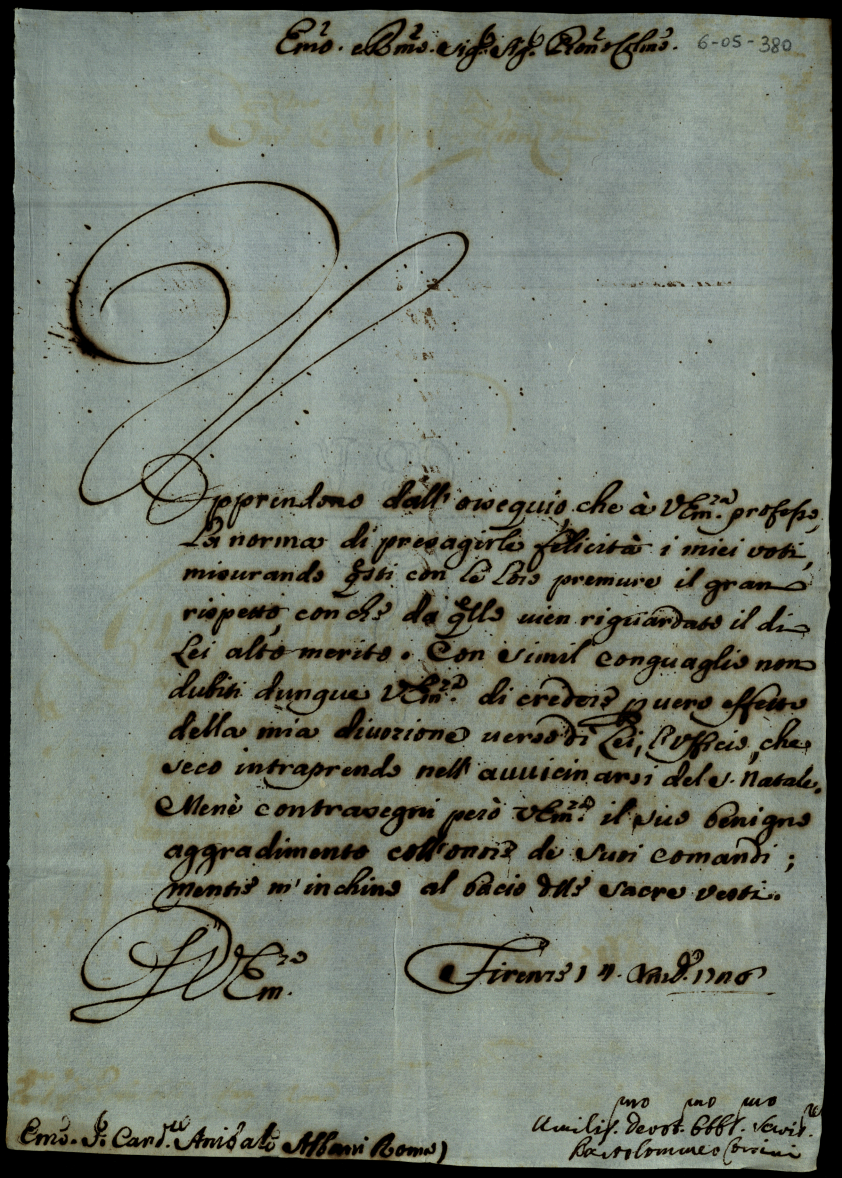 Emo. e Rmo. Sig. Sig. Rone Colmo. 6-05-380
Apprendono dall'ossequio, che à VEmza. professo,
La norma di presagirle felicità i miei voti,
misurando qsti con le loro premure il gran
rispetto, con che da qllo vien riguardato il di
Lei alto merito. Con simil conguaglio non
dubiti dunque VEmza. di credere p vero effetto
della mia divozione verso di Lei, l'Ufficio, che
seco intraprendo nell'avvicinarsi del S. Natale.
Menè contrasegni però VEmza. il suo benigno
aggradimento coll'onore de suoi comandi;
mentre m'inchino al bacio dlle sacre vesti.
Di VEmza.
Firenze 14. Xmbre
Emo. S. Cardle. Anibale Albani Roma)
Umiliss.mo devot.mo obbl.mo Servit.re
Bartolommeo Corsini